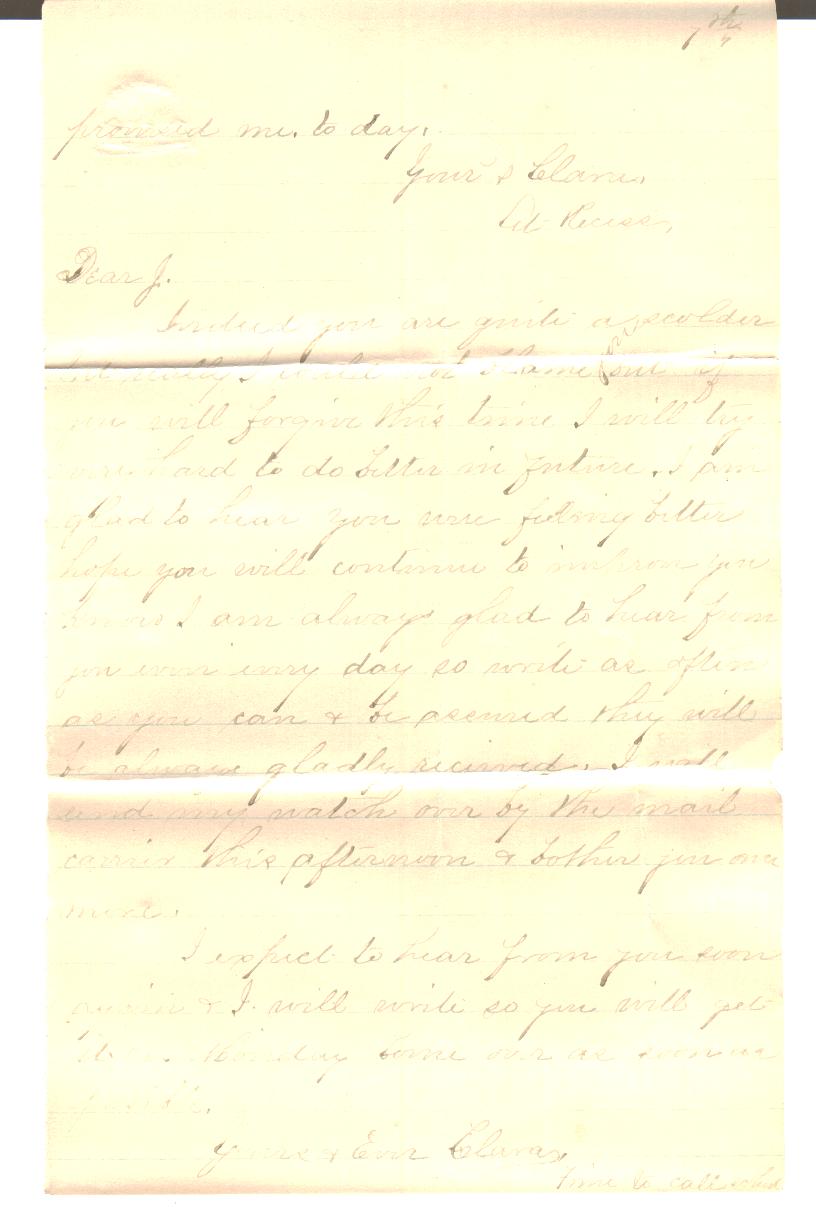 7th
promised me. to day.
Yours & Clara.
At Recess,
Dear J.
Indeed you are quite a scolder
but really I could not blame you but if
you will forgive this time I will try
very hard to do better in future. I am
glad to hear you were feeling better
hope you will continue to improve you
know I am always glad to hear from
you even every day so write as often
as you can & be assured they will
be always gladly recieved. I will
send my watch over by the mail
carrier this afternoon & bother you once
more.
I expect to hear from you soon
again & I will write so you will get
it Monday Come over as soon as
possible.
Yours & Ever Clara,
Time to call school